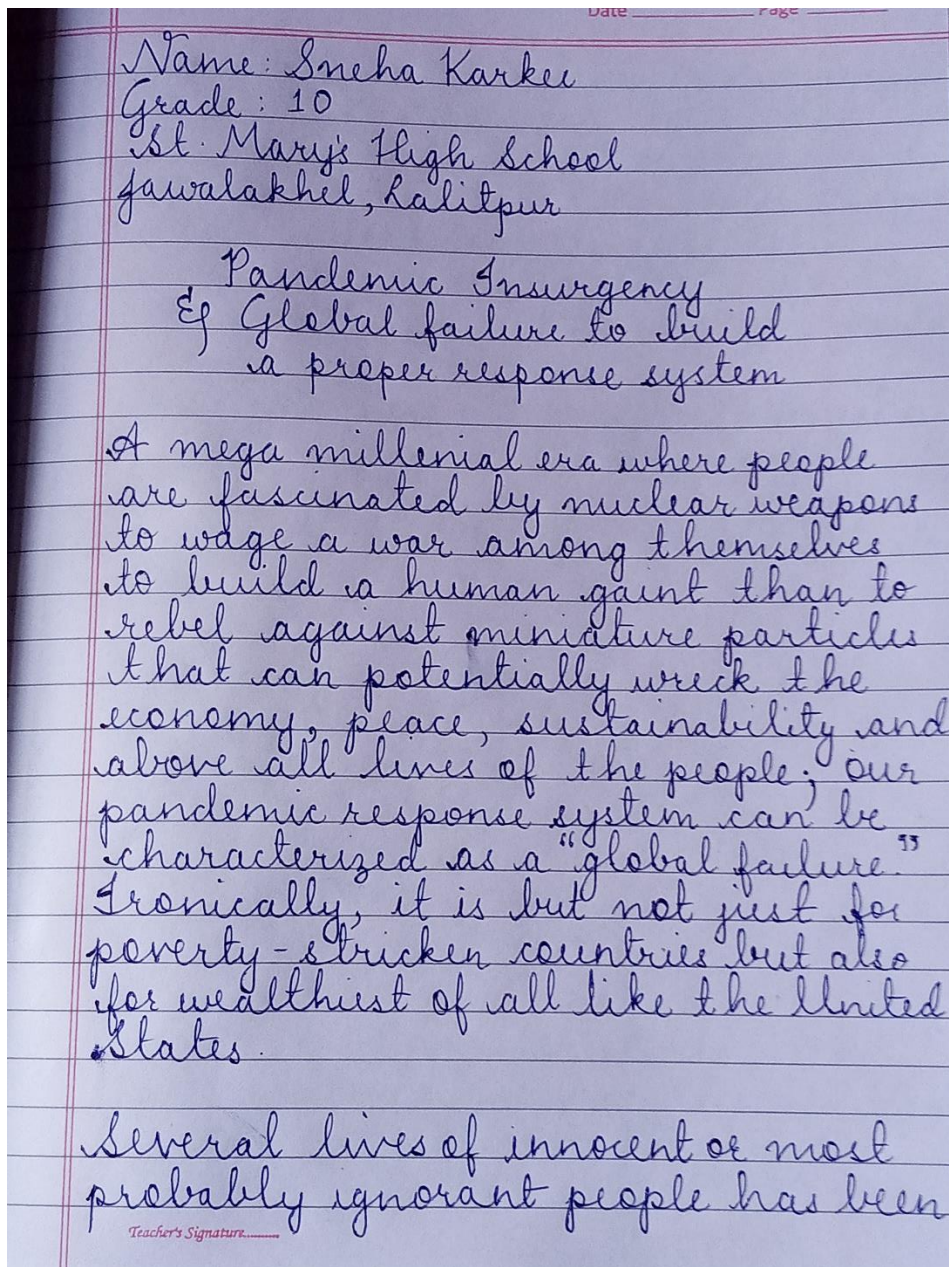 Date Page
Name: Sneha Karkee
Grade: 10
St. Mary's High School
Jawalakhel, Lalitpur
Pandemic Insurgency
& Global failure to build
a proper response system
A mega millenial era where people
are fascinated by nuclear weapons
to wage a war among themselves
to build a human gaint than to
rebel against miniature particles
that can potentially wreck the
economy, peace, sustainability and
above all lives of the people; our
pandemic response system can be
characterized as a "global failure."
Ironically, it is but not just for
poverty-stricken countries but also
for wealthiest of all like the United
States.
Several lives of innocent or most
probably ignorant people has been
Teacher's Signature